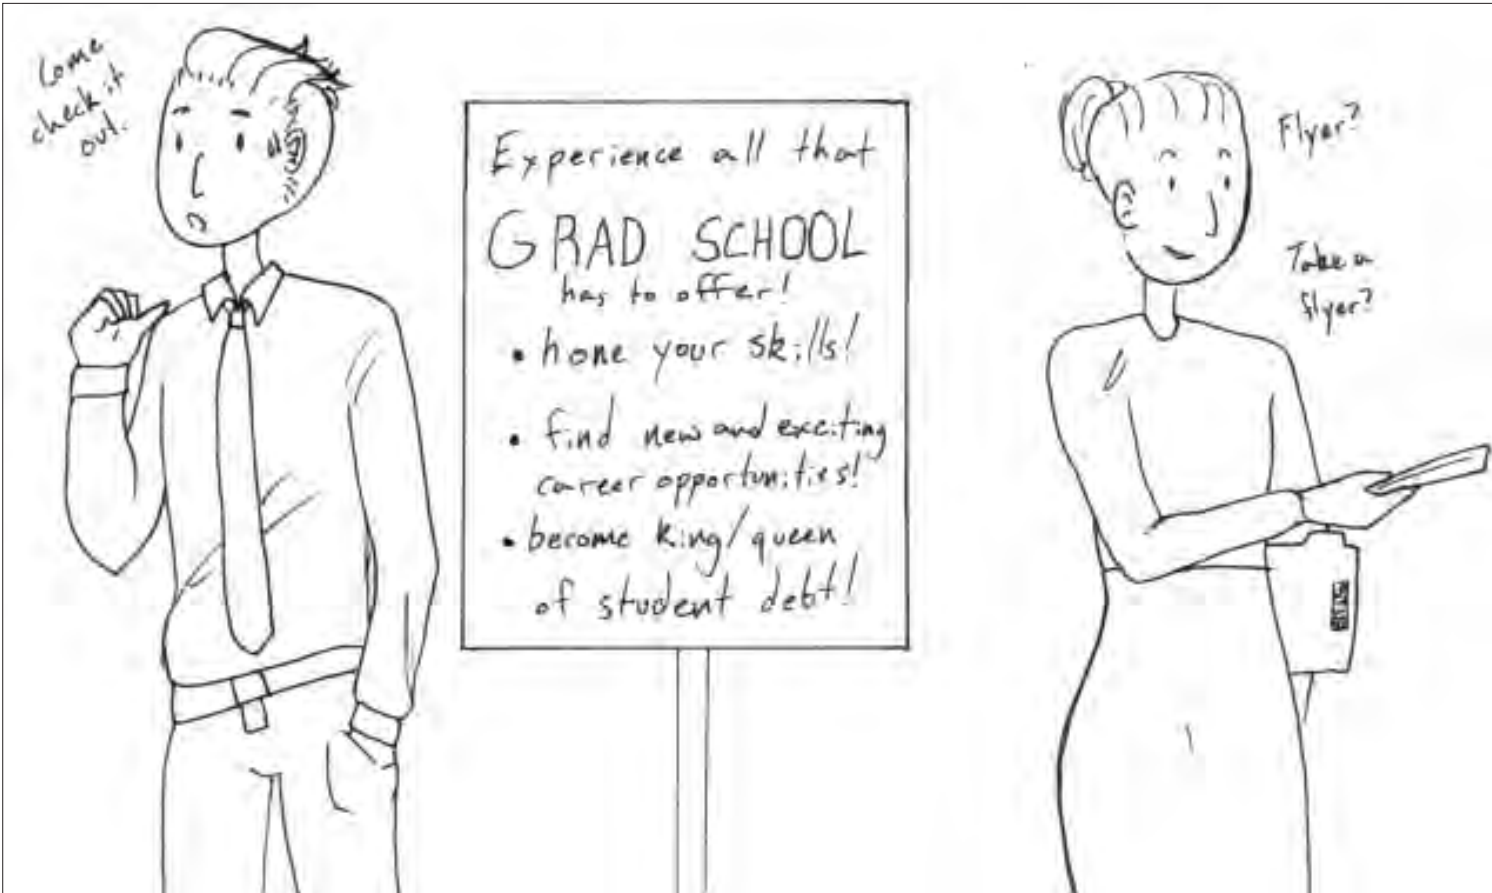 Come
check it
out.
Experience all that
GRAD SCHOOL
has to offer!
• hone your skills!
• find new and exciting
career opportunities!
• become king/queen
of student debt!
Flyer?
Take a
flyer?